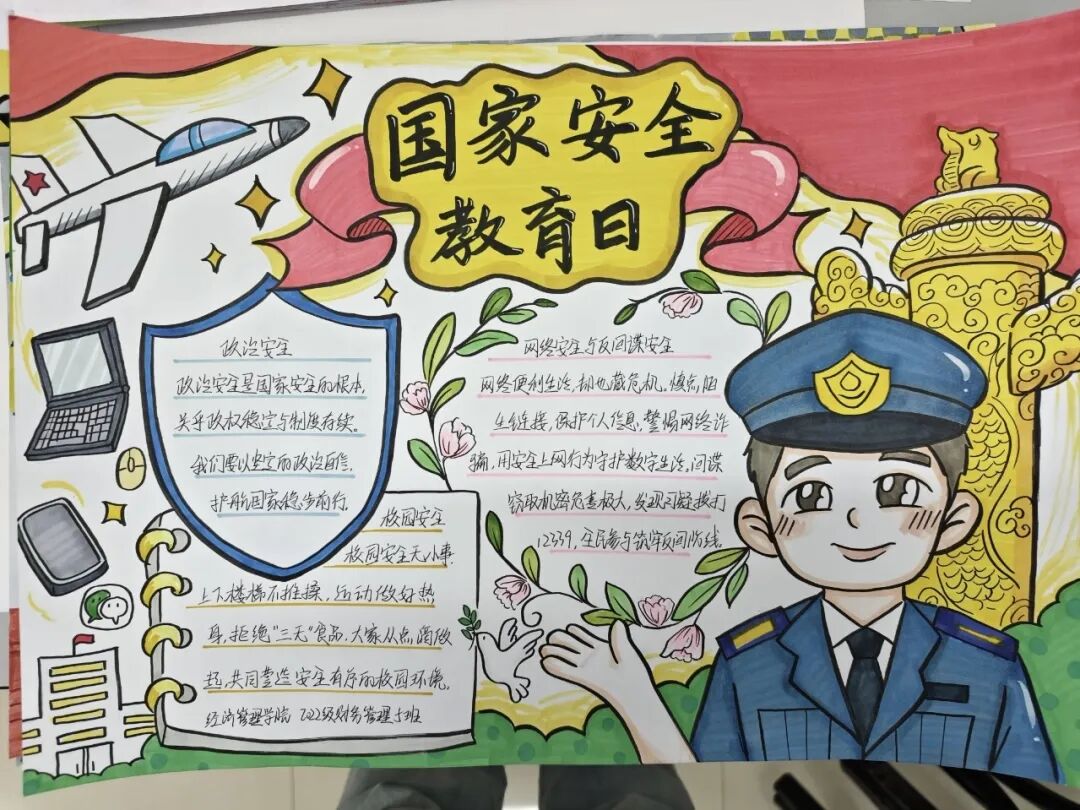 国家安全
教育日
政治安全
政治安全是国家安全的根本
关乎政权稳定与制度存续。
我们要以坚定的政治自信,
护航国家稳步前行.
网络安全与反间谍安全
网络便利生活,却也藏危机,慎点陌
生链接,保护个人信息,警惕网络诈
骗,用安全上网行为守护数字生活,间谍
窃取机密危害极大,发现可疑拨打
12339,全民参与筑牢反间防线.
校园安全
校园安全无小事.
上下楼梯不推搡,运动做好热
身,拒绝"三无"食品,大家从点滴做
起,共同营造安全有序的校园环境.
经济管理学院 2022级财务管理5班